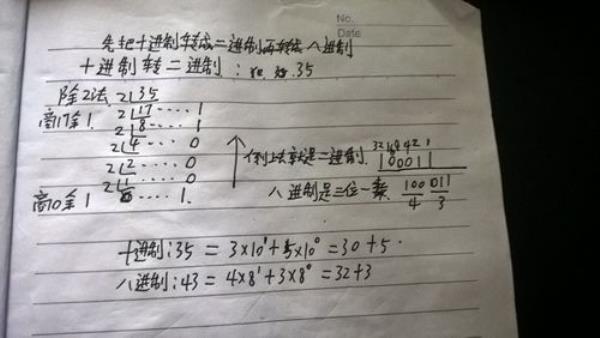 No.
Date
先把十进制转成二进制再转成八进制
十进制转二进制：比如35
除2法 2 35
商17余1 2 17 ···· 1
2 8 ···· 1
2 4 ···· 0
2 2 ···· 0
2 1 ···· 0
商0余1 0 ···· 1
32 16 8 4 2 1
倒过来就是二进制. 100011
八进制是三位一 100 011
4 3
十进制:35 = 3×10¹+5×10⁰ = 30+5
八进制:43 = 4×8¹+3×8⁰ = 32+3